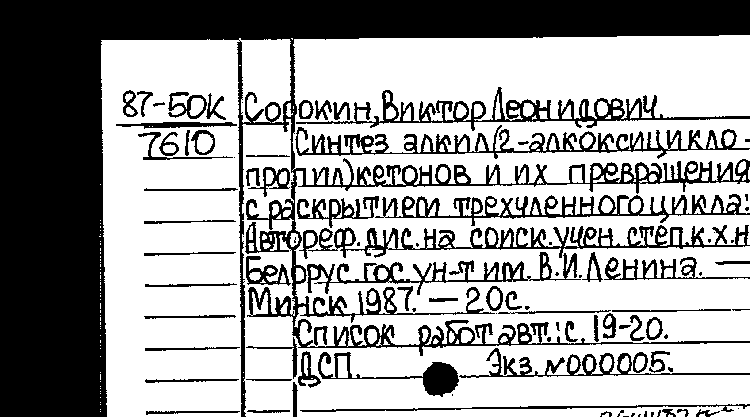 87-50К Сорокин, Виктор Леонидович.
7610 Синтез алкил(2-алкоксицикло-
пропил)кетонов и их превращения
с раскрытием трехчленного цикла:
Автореф. дис. на соиск. учен. степ. к.х.н
Белорус. гос. ун-т им. В.И. Ленина. —
Минск, 1987. — 20с.
Список работ авт.: с. 19-20.
ДСП. Экз. №000005.